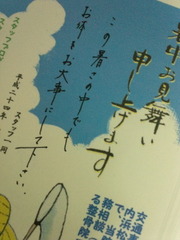 暑中お見舞い
申し上げます
この暑さの中でも
お体をお大事にして下さい。
平成二十四年 スタッフ一同
交通事
内浜松
で、当
務相談
る整骨院